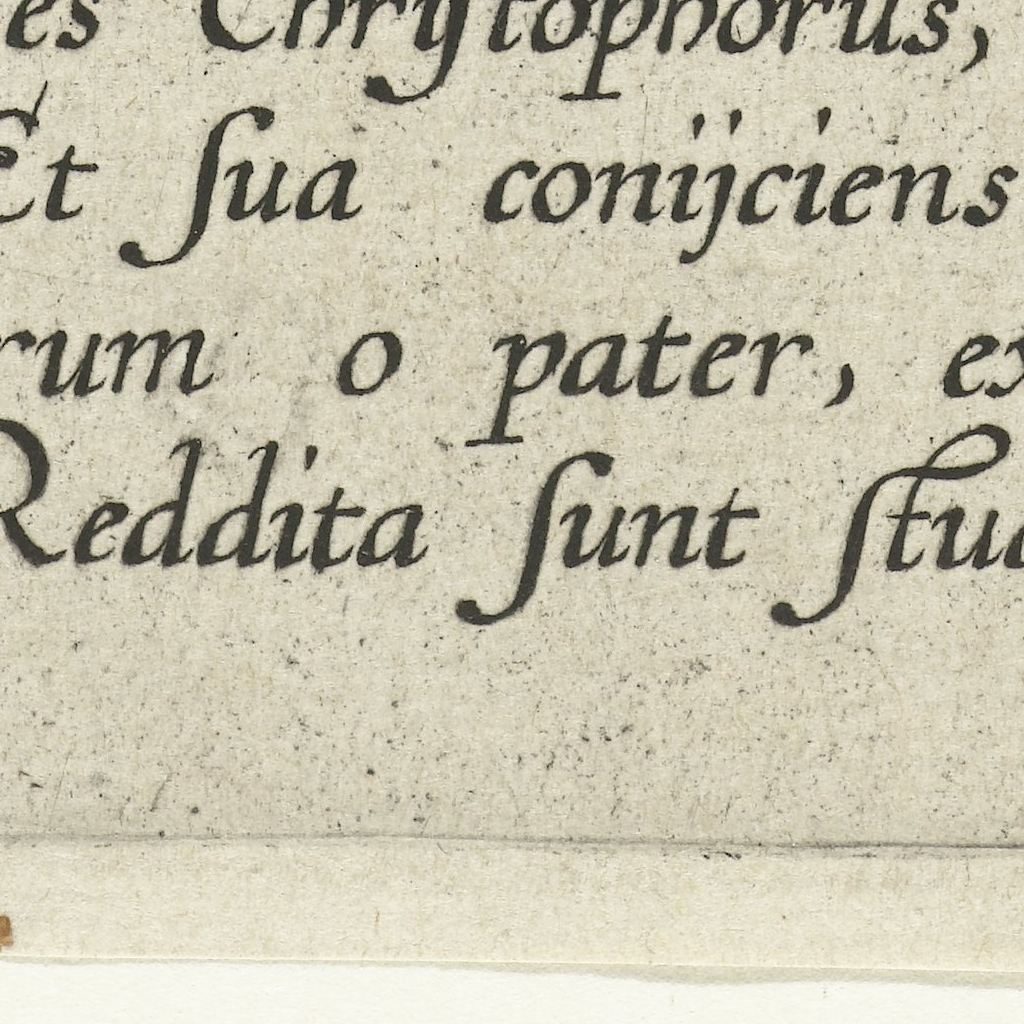 es Chryſtophorus,
Et ſua conijciens
rum o pater, ex
Reddita ſunt ſtu